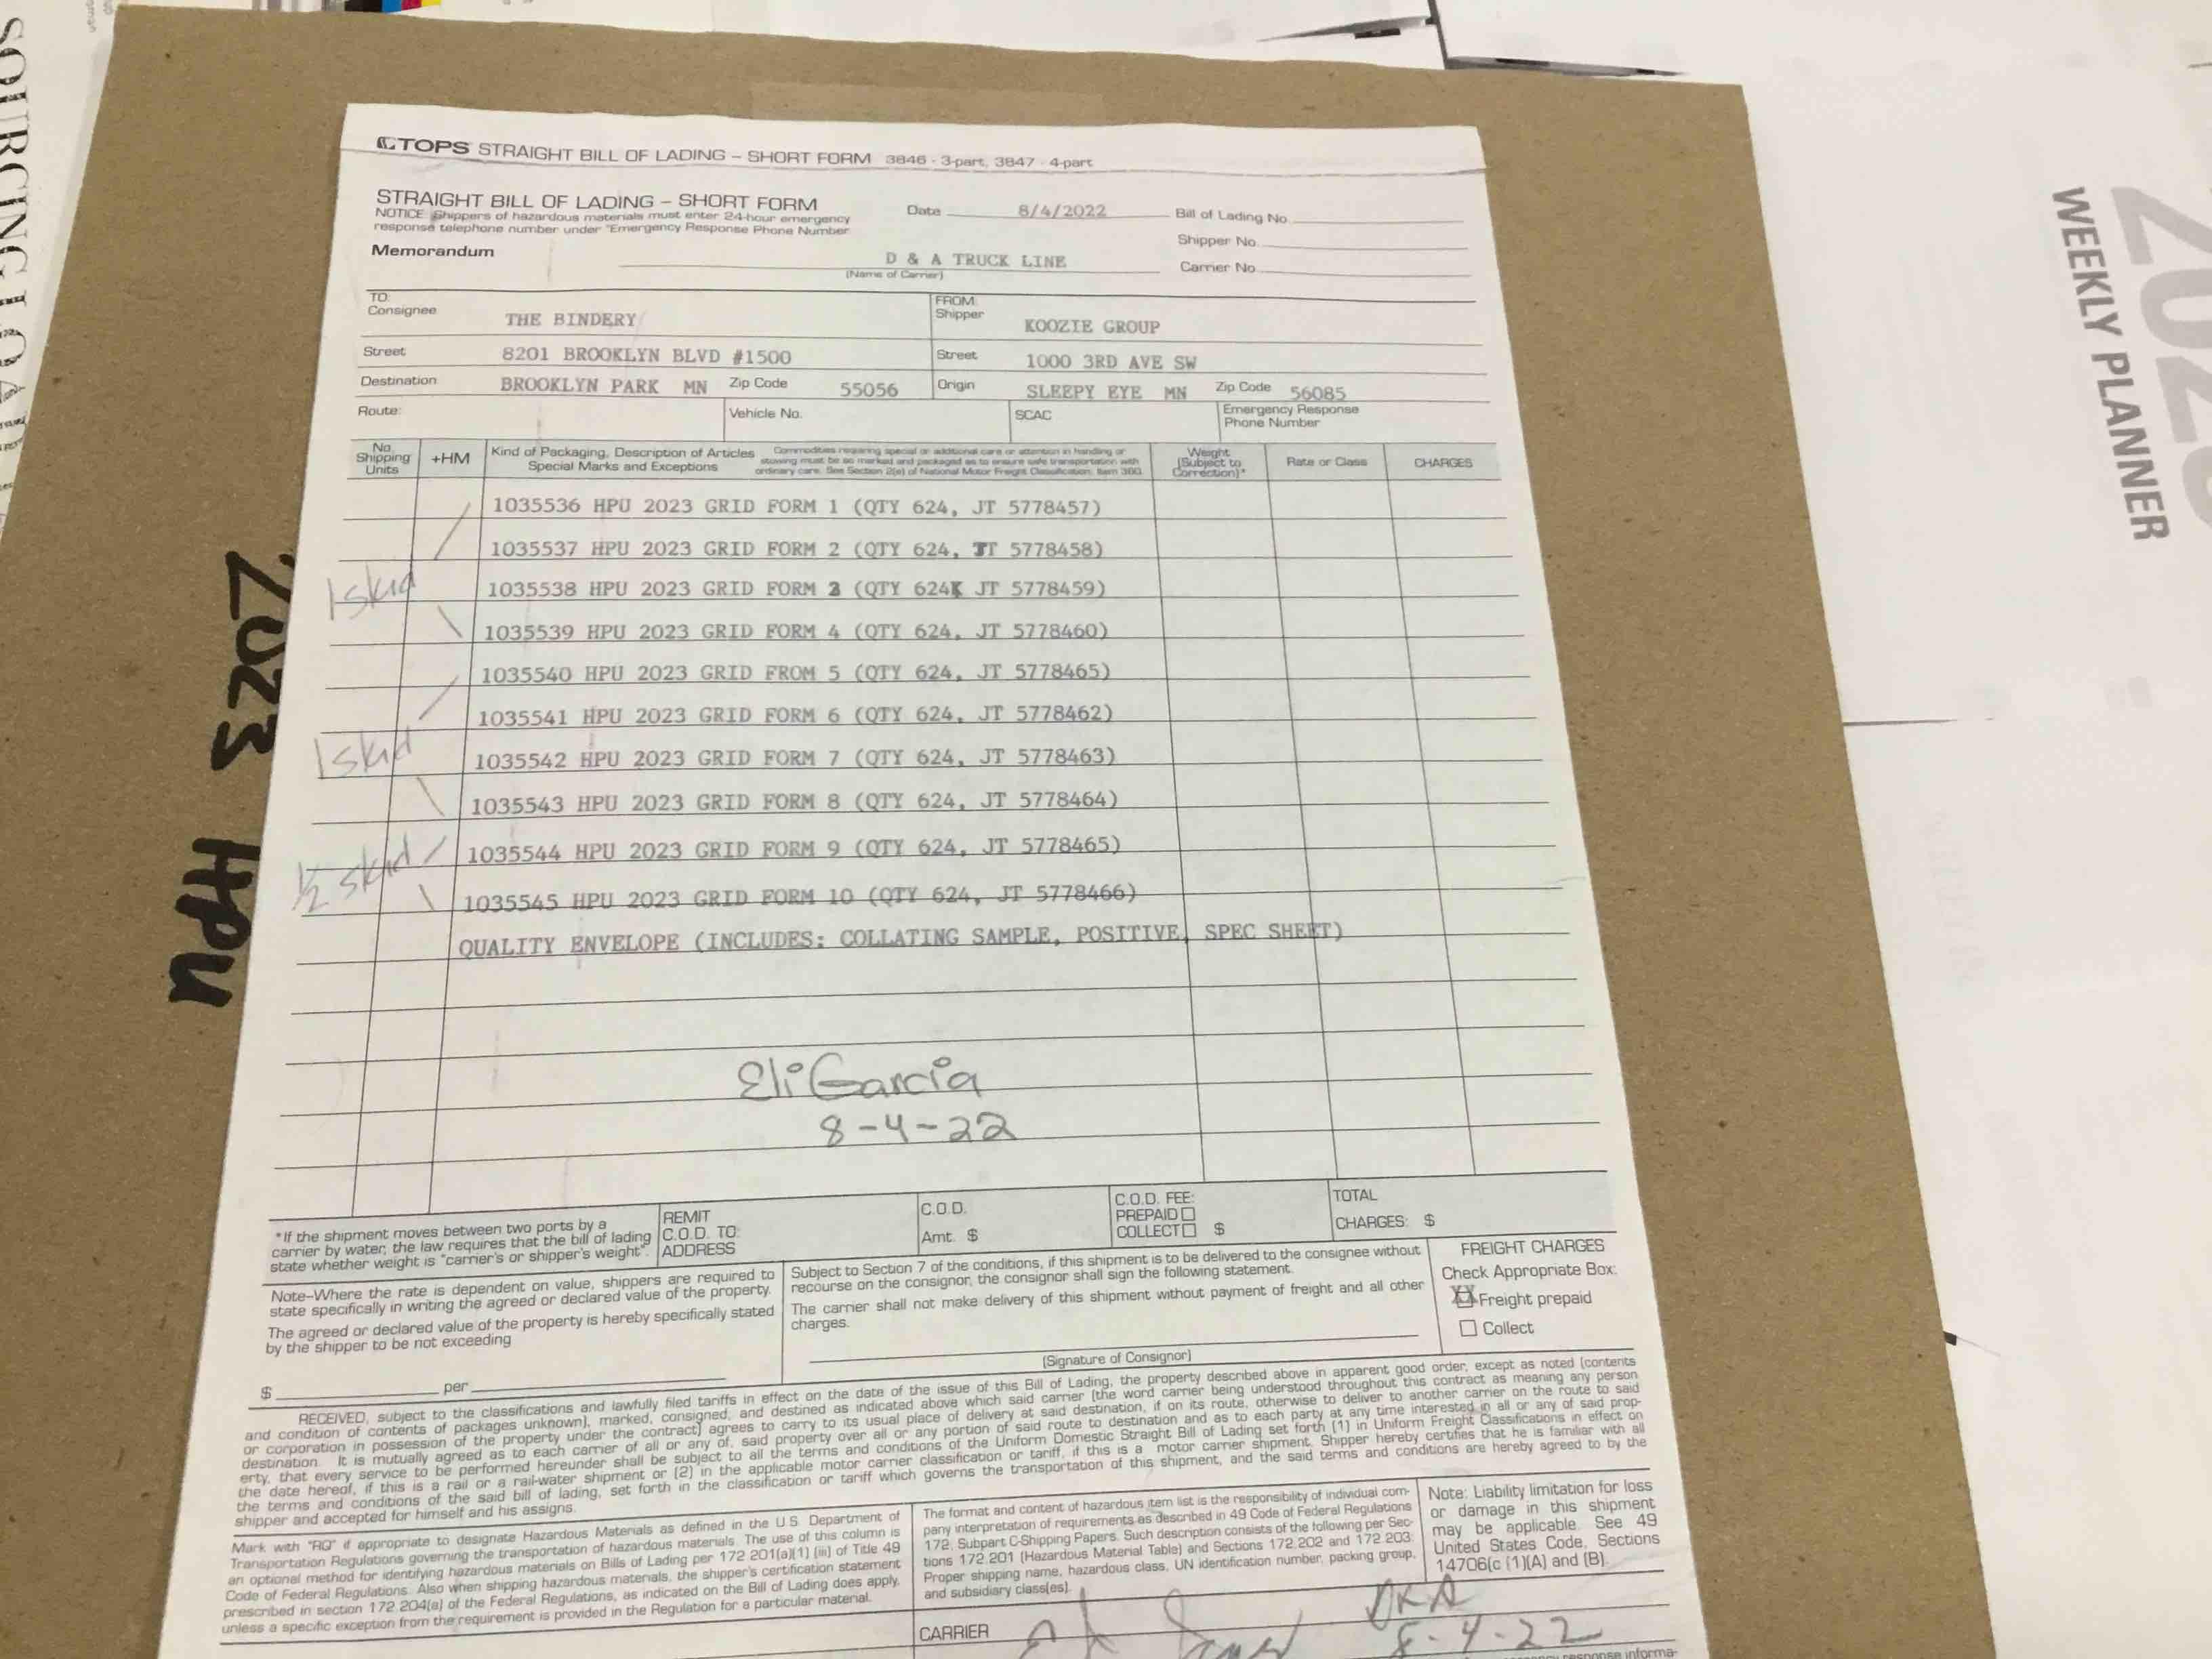 TOPS STRAIGHT BILL OF LADING – SHORT FORM 3846 - 3-part, 3847 - 4-part
STRAIGHT BILL OF LADING – SHORT FORM
NOTICE: Shippers of hazardous materials must enter 24-hour emergency
response telephone number under "Emergency Response Phone Number
Date 8/4/2022
Bill of Lading No.
Shipper No.
Memorandum
D & A TRUCK LINE
(Name of Carrier)
Carrier No.
TO:
Consignee THE BINDERY
FROM:
Shipper KOOZIE GROUP
Street 8201 BROOKLYN BLVD #1500
Street 1000 3RD AVE SW
Destination BROOKLYN PARK MN Zip Code 55056
Origin SLEEPY EYE MN Zip Code 56085
Route:
Vehicle No.
SCAC
Emergency Response
Phone Number
No.
Shipping
Units
+HM
Kind of Packaging, Description of Articles
Special Marks and Exceptions
Commodities requiring special or additional care or attention in handling or
stowing must be so marked and packaged as to ensure safe transportation with
ordinary care. See Section 2(e) of National Motor Freight Classification, Item 360.
Weight
(Subject to
Correction)*
Rate or Class
CHARGES
1035536 HPU 2023 GRID FORM 1 (QTY 624, JT 5778457)
1035537 HPU 2023 GRID FORM 2 (QTY 624, JT 5778458)
1 skid
1035538 HPU 2023 GRID FORM 3 (QTY 624, JT 5778459)
1035539 HPU 2023 GRID FORM 4 (QTY 624, JT 5778460)
1035540 HPU 2023 GRID FROM 5 (QTY 624, JT 5778465)
1035541 HPU 2023 GRID FORM 6 (QTY 624, JT 5778462)
1 skid
1035542 HPU 2023 GRID FORM 7 (QTY 624, JT 5778463)
1035543 HPU 2023 GRID FORM 8 (QTY 624, JT 5778464)
1/2 skid
1035544 HPU 2023 GRID FORM 9 (QTY 624, JT 5778465)
1035545 HPU 2023 GRID FORM 10 (QTY 624, JT 5778466)
QUALITY ENVELOPE (INCLUDES: COLLATING SAMPLE, POSITIVE, SPEC SHEET)
Eli Garcia
8-4-22
*If the shipment moves between two ports by a
carrier by water, the law requires that the bill of lading
state whether weight is "carrier's or shipper's weight".
REMIT
C.O.D. TO:
ADDRESS
C.O.D.
Amt. $
C.O.D. FEE:
PREPAID
COLLECT $
TOTAL
CHARGES: $
Note–Where the rate is dependent on value, shippers are required to
state specifically in writing the agreed or declared value of the property.
The agreed or declared value of the property is hereby specifically stated
by the shipper to be not exceeding
$ per
Subject to Section 7 of the conditions, if this shipment is to be delivered to the consignee without
recourse on the consignor, the consignor shall sign the following statement.
The carrier shall not make delivery of this shipment without payment of freight and all other
charges.
(Signature of Consignor)
FREIGHT CHARGES
Check Appropriate Box:
XX Freight prepaid
Collect
RECEIVED, subject to the classifications and lawfully filed tariffs in effect on the date of the issue of this Bill of Lading, the property described above in apparent good order, except as noted (contents
and condition of contents of packages unknown), marked, consigned, and destined as indicated above which said carrier (the word carrier being understood throughout this contract as meaning any person
or corporation in possession of the property under the contract) agrees to carry to its usual place of delivery at said destination, if on its route, otherwise to deliver to another carrier on the route to said
destination. It is mutually agreed as to each carrier of all or any of, said property over all or any portion of said route to destination and as to each party at any time interested in all or any of said prop-
erty, that every service to be performed hereunder shall be subject to all the terms and conditions of the Uniform Domestic Straight Bill of Lading set forth (1) in Uniform Freight Classifications in effect on
the date hereof, if this is a rail or a rail-water shipment or (2) in the applicable motor carrier classification or tariff, if this is a motor carrier shipment. Shipper hereby certifies that he is familiar with all
the terms and conditions of the said bill of lading, set forth in the classification or tariff which governs the transportation of this shipment, and the said terms and conditions are hereby agreed to by the
shipper and accepted for himself and his assigns.
Mark with "RQ" if appropriate to designate Hazardous Materials as defined in the U.S. Department of
Transportation Regulations governing the transportation of hazardous materials. The use of this column is
an optional method for identifying hazardous materials on Bills of Lading per 172.201(a)(1) (iii) of Title 49
Code of Federal Regulations. Also when shipping hazardous materials, the shipper's certification statement
prescribed in section 172.204(a) of the Federal Regulations, as indicated on the Bill of Lading does apply,
unless a specific exception from the requirement is provided in the Regulation for a particular material.
The format and content of hazardous item list is the responsibility of individual com-
pany interpretation of requirements as described in 49 Code of Federal Regulations
172, Subpart C-Shipping Papers. Such description consists of the following per Sec-
tions 172.201 (Hazardous Material Table) and Sections 172.202 and 172.203:
Proper shipping name, hazardous class, UN identification number, packing group,
and subsidiary class(es).
Note: Liability limitation for loss
or damage in this shipment
may be applicable. See 49
United States Code, Sections
14706(c (1)(A) and (B).
CARRIER
8-4-22
2023 HPU
2023
WEEKLY PLANNER